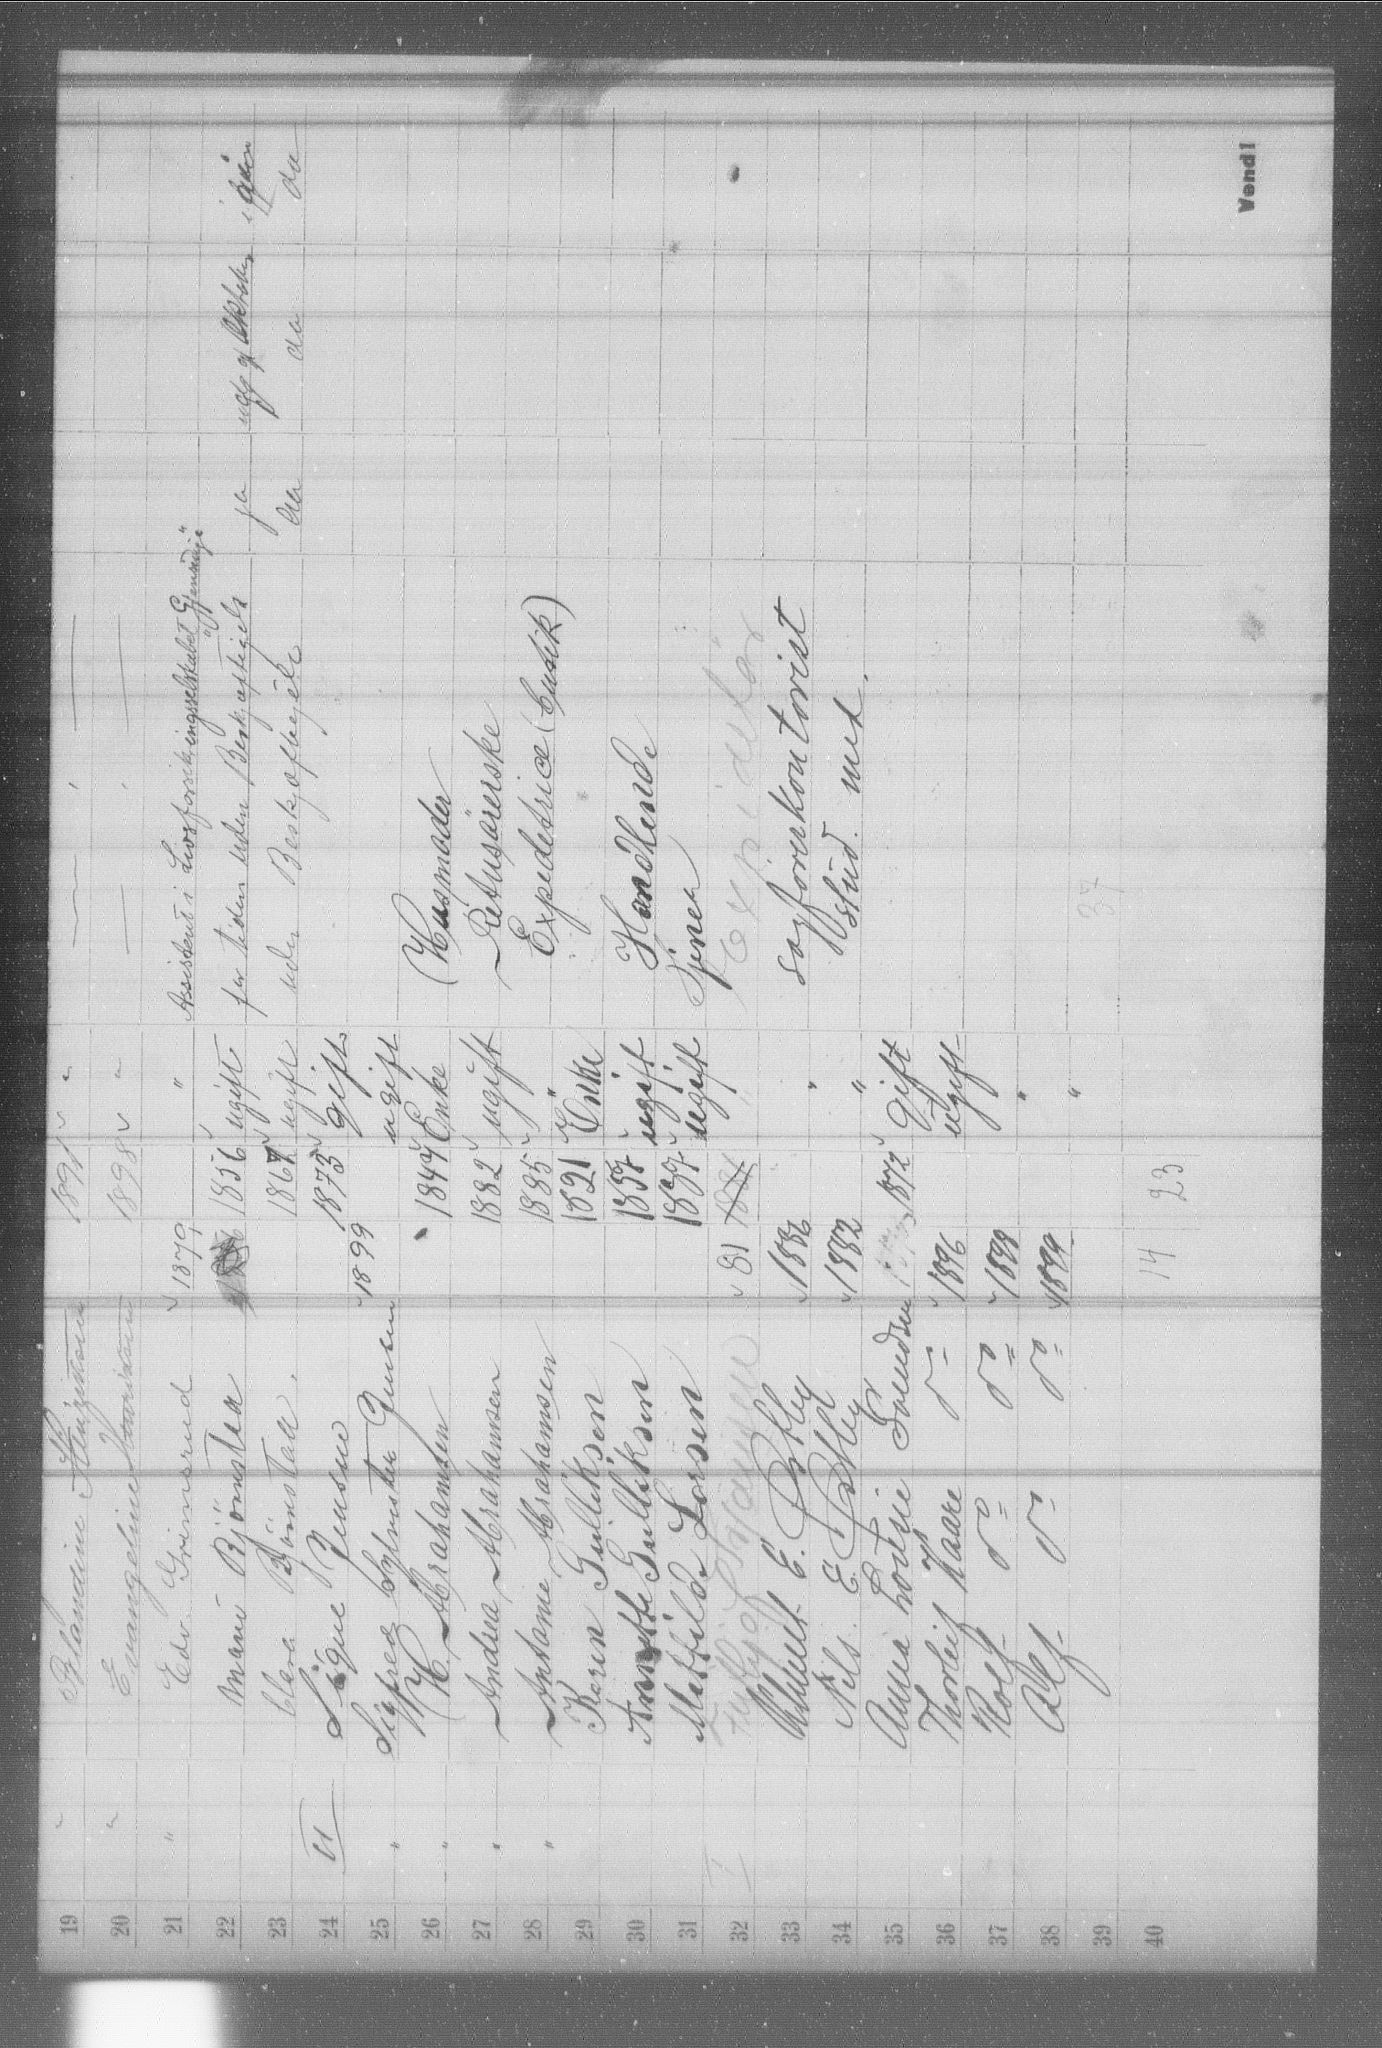 19 " Blandine 1891 " — " —
20 " Evangeline 1898 " — " —
21 " Edv. Grimsrud 1879 " Assistent i Livsforsikringsselskabet "Gjensidige"
22 Marie Björnstad 1856 ugift for tiden uden Beskjæftigelse ja
23 Clara Björnstad. 1867 ugift uden Beskjæftigelse da da da
24 II Signe Jensen 1873 gift
25 " Sigfred Sylvester Jensen 1899 ugift
26 " (K. Abrahamsen 1847 Enke (Husmoder
27 " Andrea Abrahamsen 1882 ugift Retusörerske
28 " Antonie Abrahamsen 1885 " Expeditrice (butik)
29 Karen Gulliksen 1821 Enke
30 Anette Gulliksen 1857 ugift Handlende
31 Mathilde Larsen 1877 ugift Tjener
32 I 81 1881 " Expeditør
33 E. 1886 " sagförerkontorist
34 Nils E. 1882 " stud. med.
35 Anna Lovise 1872 gift
36 Thorleif Kaare do 1896 ugift
37 Rolf do do 1898 "
38 Alf do do 1899 "
39
40 14 23
37
Vend!